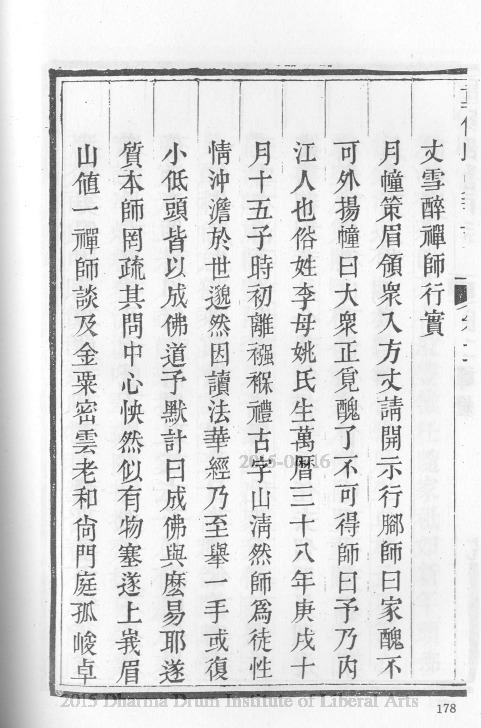 丈雪醉禪師行實
月幢策眉領衆入方丈請開示行腳師曰家醜不
可外揚幢曰大衆正覓醜了不可得師曰予乃內
江人也俗姓李母姚氏生萬曆三十八年庚戌十
月十五子時初離襁褓禮古字山清然師爲徒性
情沖澹於世邈然因讀法華經乃至舉一手或復
小低頭皆以成佛道予默計曰成佛與麽易耶遂
質本師罔疏其問中心怏然似有物塞遂上峩眉
山値一禪師談及金粟密雲老和尙門庭孤峻卓
2015 Dharma Drum Institute of Liberal Arts
178